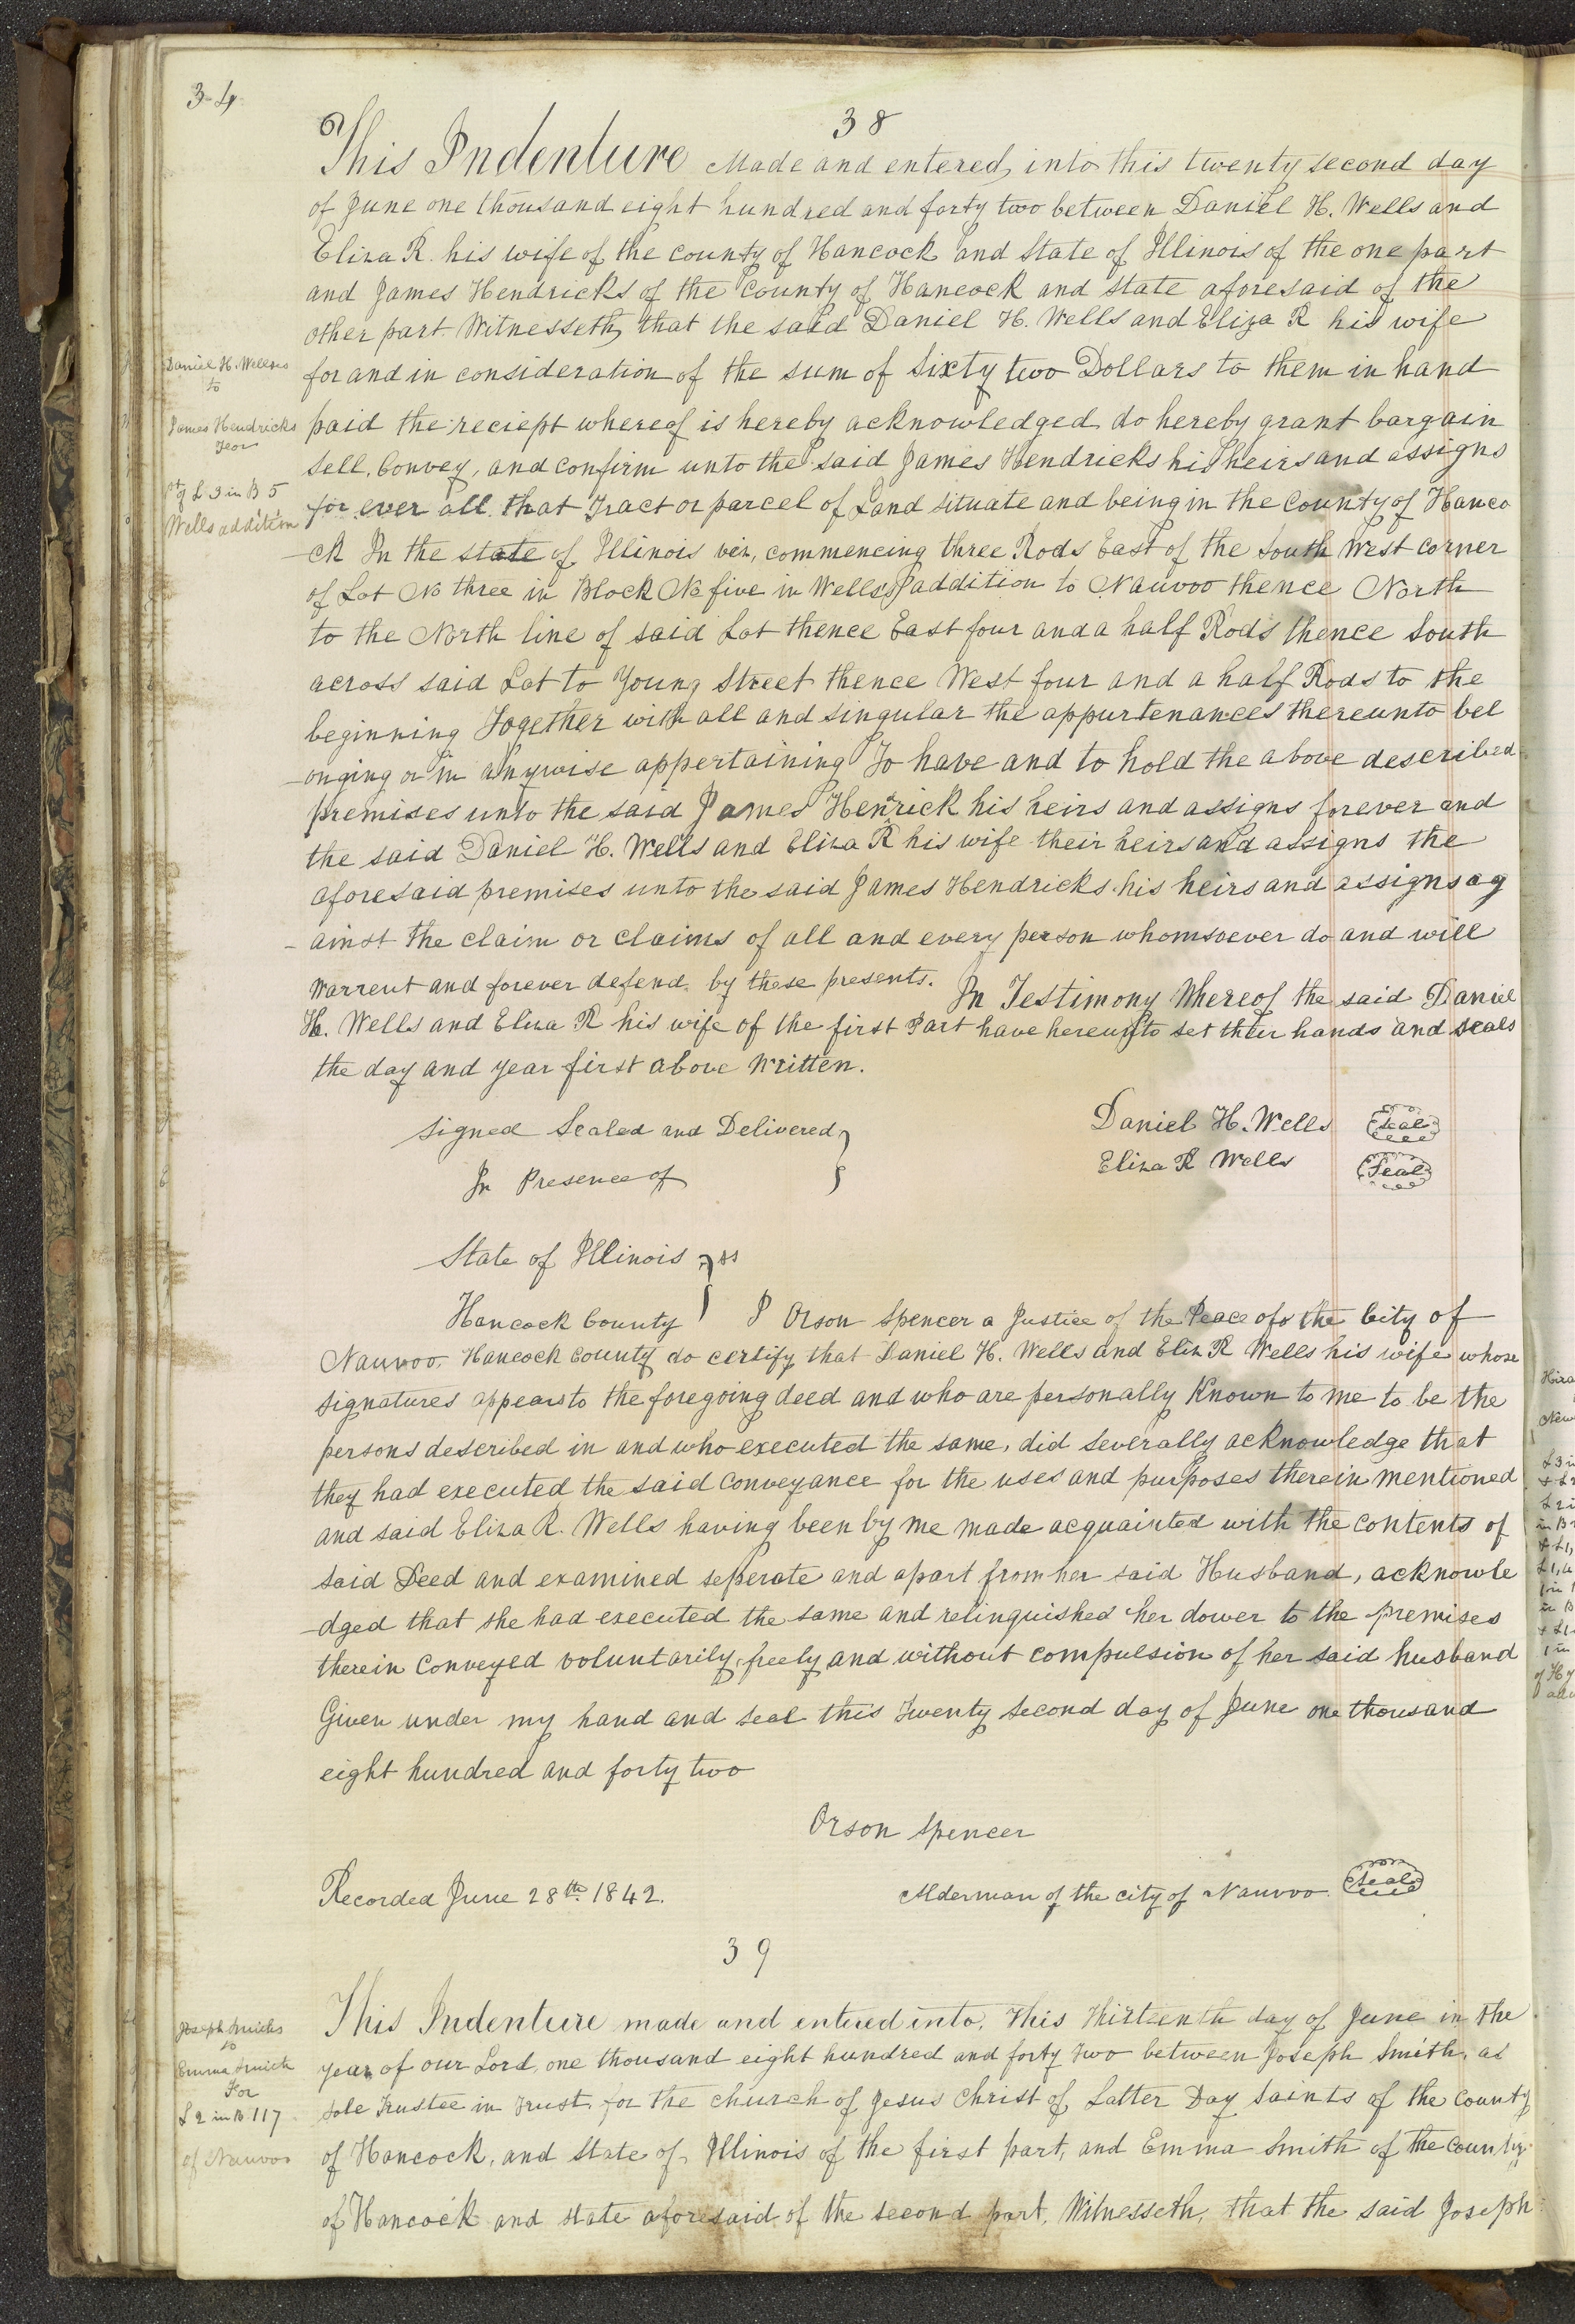 34
38
This Indenture Made and entered into this twenty second day
of June one thousand eight hundred and forty two between Daniel H. Wells and
Eliza R. his wife of the county of Hancock and State of Illinois of the one part
and James Hendricks of the County of Hancock and state aforesaid of the
other part Witnesseth, that the said Daniel H. Wells and Eliza R his wife
Daniel H. Wells
to
for and in consideration of the sum of Sixty two Dollars to them in hand
James Hendricks
For
paid the reciept whereof is hereby acknowledged do hereby grant bargain
sell, Convey, and confirm unto the said James Hendricks his heirs and assigns
Pt of L 3 in B 5
Wells addition
for ever all that Tract or parcel of Land situate and being in the County of Hanco
-ck In the state of Illinois viz, commencing three Rods East of the South West corner
of Lot No three in Block No five in Wells's addition to Nauvoo thence North
to the North line of said Lot thence East four and a half Rods thence South
across said Lot to Young Street thence West four and a half Rods to the
beginning Together with all and singular the appurtenances thereunto bel
-onging or in anywise appertaining To have and to hold the above described
premises unto the said James Henrick his heirs and assigns forever and
the said Daniel H. Wells and Eliza R his wife their heirs and assigns the
aforesaid premises unto the said James Hendricks his heirs and assigns ag
-ainst the claim or claims of all and every person whomsoever do and will
Warrent and forever defend by these presents. In Testimony Whereof the said Daniel
H. Wells and Eliza R his wife of the first Part have hereunto set their hands and seals
the day and year first above Written.
Signed Sealed and Delivered
In Presence of
Daniel H. Wells Seal
Eliza R Wells Seal
State of Illinois ss
Hancock County I Orson Spencer a Justice of the Peace of the City of
Nauvoo. Hancock County do certify that Daniel H. Wells and Eliz R Wells his wife whose
signatures appears to the foregoing deed and who are personally Known to me to be the
persons described in and who executed the same, did severally acknowledge that
they had executed the said conveyance for the uses and purposes therein mentioned
and said Eliza R. Wells having been by me made acquainted with the contents of
said Deed and examined seperate and apart from her said Husband, acknowle
-dged that she had executed the same and relinquished her dower to the premises
therein Conveyed voluntarily, freely and without compulsion of her said husband
Given under my hand and seal this Twenty second day of June one thousand
eight hundred and forty two
Orson Spencer
Recorded June 28th 1842.
Alderman of the city of Nauvoo Seal
39
Joseph Smith
to
Emma Smith
For
L 2 in B 117
of Nauvoo
This Indenture made and entered into, this thirteenth day of June in the
year of our Lord, one thousand eight hundred and forty two between Joseph Smith, as
sole Trustee in Trust for the church of Jesus Christ of Latter Day Saints of the County
of Hancock, and State of Illinois of the first part, and Emma Smith of the County
of Hancock and state aforesaid of the second part, Witnesseth, that the said Joseph